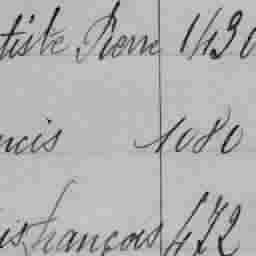 tiste Pierre 1430
ncis 1080
is françois 472